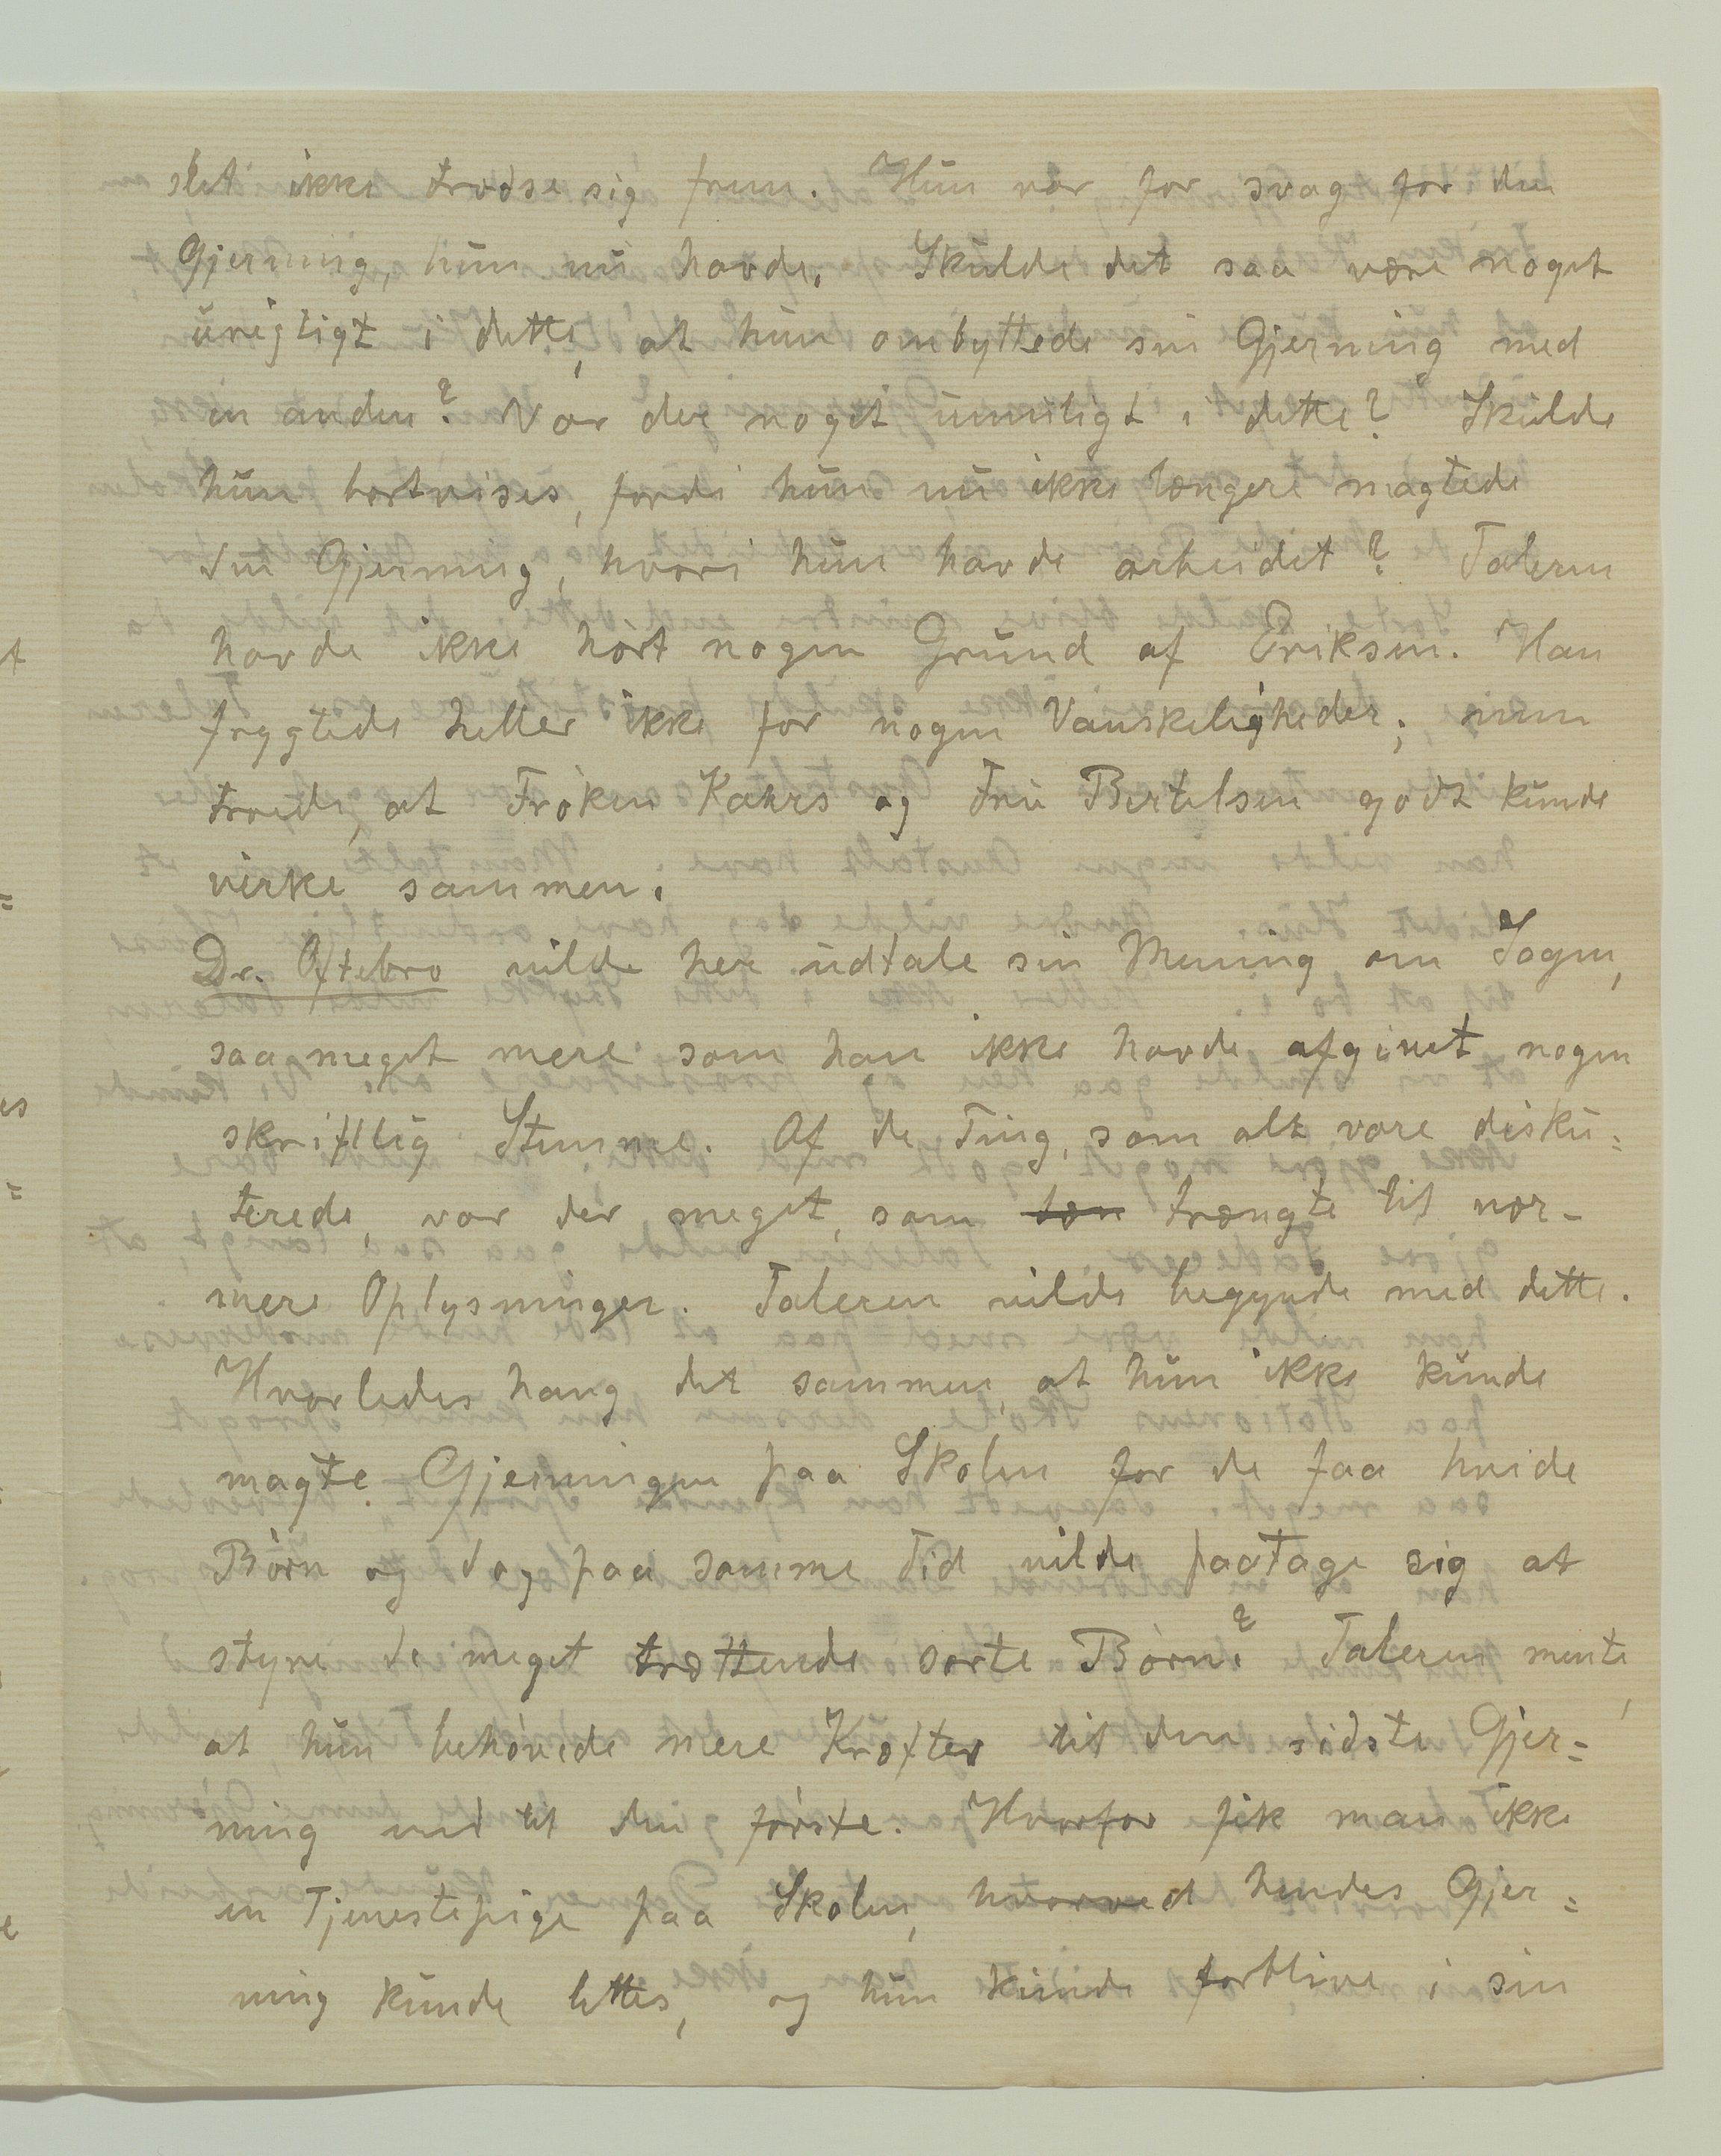 slet ikke trodse sig frem. Hun var for svag for den
Gjerning, hun nu havde. Skulde det saa være noget
urigtigt i dette, at hun ombyttede sin Gjerning med
en anden? Var der noget umuligt i dette? Skulde
hun bortvises, fordi hun nu ikke længere magtede
den Gjerning, hvori hun havde arbeidet? Taleren
havde ikke hørt nogen Grund af Eriksen. Han
frygtede heller ikke for nogen Vanskeligheder; men
troede, at Frøken Kahrs og Fru Bertelsen godt kunde
virke sammen.
Dr. Oftebro vilde her udtale sin Mening om Sagen,
saameget mere som han ikke havde afgivet nogen
skriftlig Stemme. Af de Ting, som alt vare disku=
terede, var der meget, som tæn trængte til nær-
mere Oplysninger. Taleren vilde begynde med dette.
Hvorledes hang det sammen, at hun ikke kunde
magte Gjerningen paa Skolen for de faa hvide
Børn og dog paa samme Tid vilde paatage sig at
styre de meget trættende sorte Børn? Taleren mente,
at hun behøvede mere Kræfter til den sidste Gjer=
ning end til den første. Hvorfor fik man ikke
en Tjenestepige paa Skolen, hvorved hendes Gjer=
ning kunde lettes, og hun kunde forblive i sin